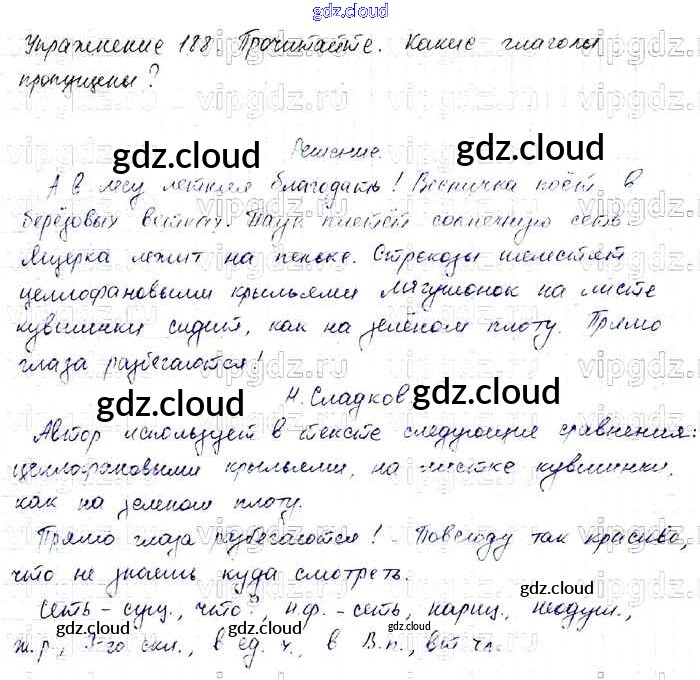 gdz.cloud
Упражнение 188. Прочитайте. Какие глаголы
пропущены?
Решение.
А в лесу летняя благодать! Весничка поёт в
берёзовых ветках. Паук плетёт солнечную сеть.
Ящерка лежит на пеньке. Стрекозы шелестят
целлофановыми крыльями лягушонок на листе
кувшинки сидит, как на зелёном плоту. Прямо
глаза разбегаются!
Н. Сладков.
Автор использует в тексте следующие сравнения:
целлофановыми крыльями, на листке кувшинки,
как на зеленом плоту.
Прямо глаза разбегаются! - Повсюду так красиво,
что не знаешь куда смотреть.
Сеть - сущ., что?, н.ф. - сеть, нариц., неодуш.,
ж.р., 3-го скл., в ед. ч., в В.п., вт. чл.
gdz.cloud
gdz.cloud
gdz.cloud
gdz.cloud
gdz.cloud
gdz.cloud
gdz.cloud
vipgdz.ru